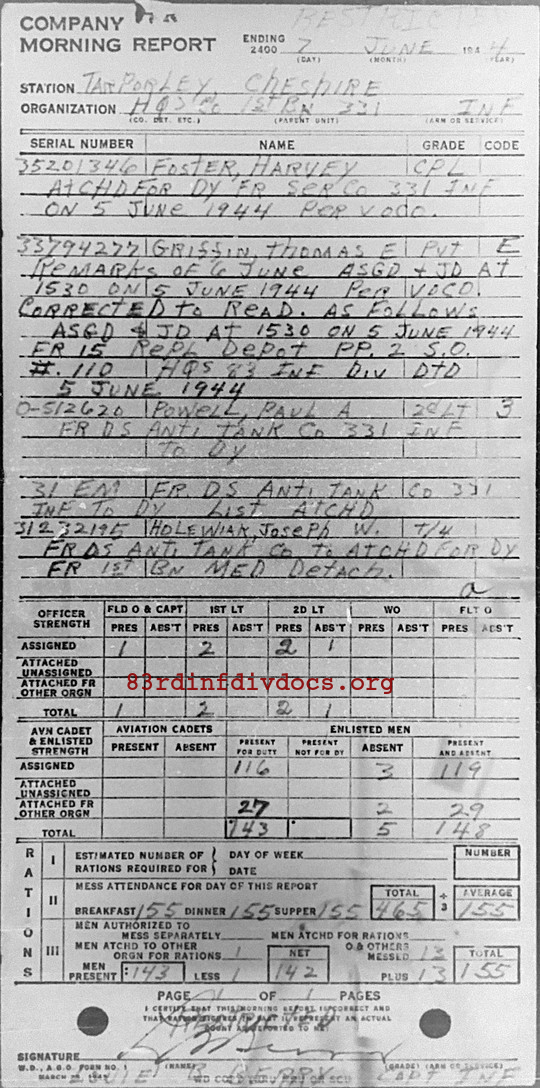 COMPANY
MORNING REPORT
RESTRICTED
ENDING 2400 7 JUNE 1944
(DAY) (MONTH) (YEAR)
STATION TARPORLEY, CHESHIRE
ORGANIZATION HQS Co 1ST BN 331 INF
(CO. DET. ETC.) (PARENT UNIT) (ARM OR SERVICE)
SERIAL NUMBER NAME GRADE CODE
35201346 FOSTER, HARVEY CPL
AtCHD FOR DY FR SER Co 331 INF
ON 5 JUNE 1944 PER VOCO.
33794277 GRISSIN, THOMAS E Pvt E
REMARKS OF 6 JUNE ASGD & JD AT
1530 ON 5 JUNE 1944 PER VOCO.
CORRECTED to READ. AS FOLLOWS
ASGD & JD AT 1530 ON 5 JUNE 1944
FR 15 REPL DEPOT PP. 2 S.O.
#. 110 HQS 83 INF DIV DTD
5 JUNE 1944
O-512620 POWELL, PAUL A 2d LT 3
FR DS ANTI TANK Co 331 INF
TO DY
31 EM FR. DS ANTI TANK Co 331
INF TO DY LIST ATCHD
31232195 HOLEWIAK, JOSEPH W. T/4
FR DS ANTI TANK Co to ATCHD FOR DY
FR 1ST BN MED DetACH.
a
OFFICER STRENGTH FLD O & CAPT 1ST LT 2D LT WO FLT O
PRES ABS'T PRES ABS'T PRES ABS'T PRES ABS'T PRES ABS'T
ASSIGNED 1 2 2 1
ATTACHED UNASSIGNED
ATTACHED FR OTHER ORGN
83rdinfdivdocs.org
TOTAL 1 2 2 1
AVN CADET & ENLISTED STRENGTH AVIATION CADETS ENLISTED MEN
PRESENT ABSENT PRESENT FOR DUTY PRESENT NOT FOR DY ABSENT PRESENT AND ABSENT
ASSIGNED 116 3 119
ATTACHED UNASSIGNED
ATTACHED FR OTHER ORGN 27 2 29
TOTAL 143 5 148
RATIONS
I ESTIMATED NUMBER OF RATIONS REQUIRED FOR { DAY OF WEEK DATE NUMBER
II MESS ATTENDANCE FOR DAY OF THIS REPORT TOTAL ÷ 3 AVERAGE
BREAKFAST 155 DINNER 155 SUPPER 155 465 155
III MEN AUTHORIZED TO MESS SEPARATELY MEN ATCHD FOR RATIONS
MEN ATCHD TO OTHER ORGN FOR RATIONS 1 NET O & OTHERS MESSED 13 TOTAL
MEN PRESENT 143 LESS 1 142 PLUS 13 155
PAGE 1 OF 1 PAGES
I CERTIFY THAT THIS MORNING REPORT IS CORRECT AND
THAT
IN PART II REPRESENT AN ACTUAL
COUNT AS REPORTED TO ME
SIGNATURE
W.D., A.G.O. FORM NO. 1 (NAME) (GRADE) (ARM OR SERVICE)
B BERRY CAPT INF